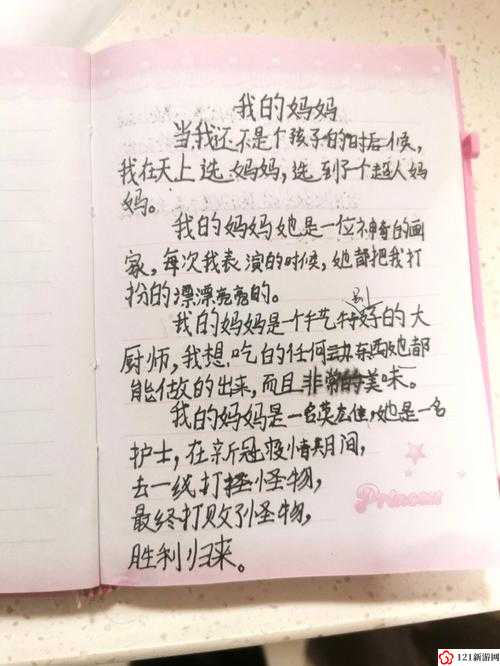 我的妈妈
当我还不是个孩子的时后候，
我在天上选妈妈，选到了个超人妈
妈。
我的妈妈她是一位神奇的画
家，每次我表演的时候，她都把我打
扮的漂漂亮亮的。
我的妈妈是个手艺特别好的大
厨师，我想吃的任何东西她都
能做的出来，而且非常的美味。
我的妈妈是一名英雄，她是一名
护士，在新冠疫情期间，
去一线打怪物，
最终打败了怪物，
胜利归来。
Princess
121新游网